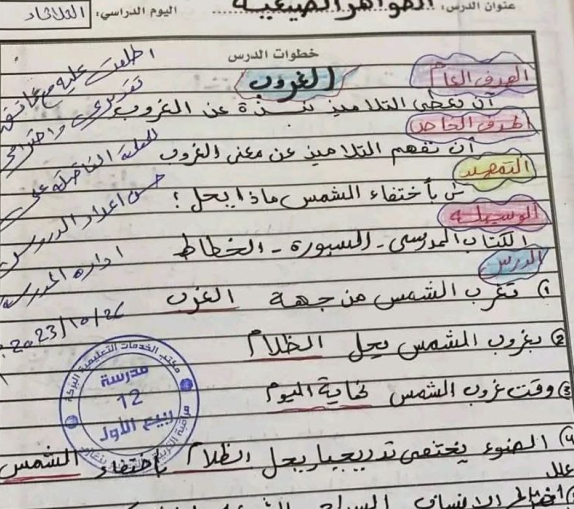 عنوان الدرس: الظواهر الطبيعية اليوم الدراسي: الثلاثاء
خطوات الدرس
الغروب
الهدف العام
أن يعطى التلاميذ نبذة عن الغروب
الهدف الخاص
أن تفهم التلاميذ عن معنى الغروب
التمهيد
س بأختفاء الشمس ماذا يحل ؟
الوسيلة
الكتاب المدرسى - المسبورة - الخطاط
الدرس
1) تغرب الشمس من جهة الغرب
2) بغروب الشمس يحل الظلام
3) وقت غروب الشمس نهاية اليوم
4) الضوء يختفى تدريجيا ويحل الظلام بأختفاء الشمس
اطلعت عليه مع
تقديرى واحترامى
للمعلمة الفاضلة على
حسن اعداد الدروس
ادارة المدرسة
2023/10/26
مكتب الخدمات التعليمية
مدرسة
12
ربيع الأول